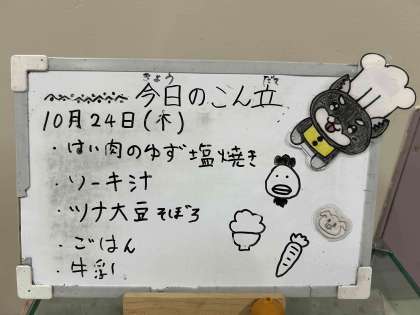 きょう だて
今日のこん立
10月24日(木)
・はい肉のゆず塩焼き
・ソーキ汁
・ツナ大豆そぼろ
・ごはん
・牛乳